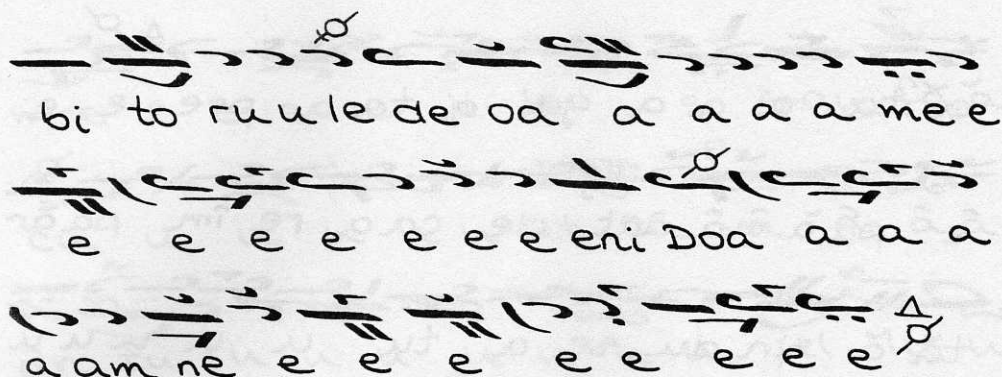 bi to ru u le de oa a a a a me e
e e e e e e e eni Doa a a a
a am ne e e e e e e e e